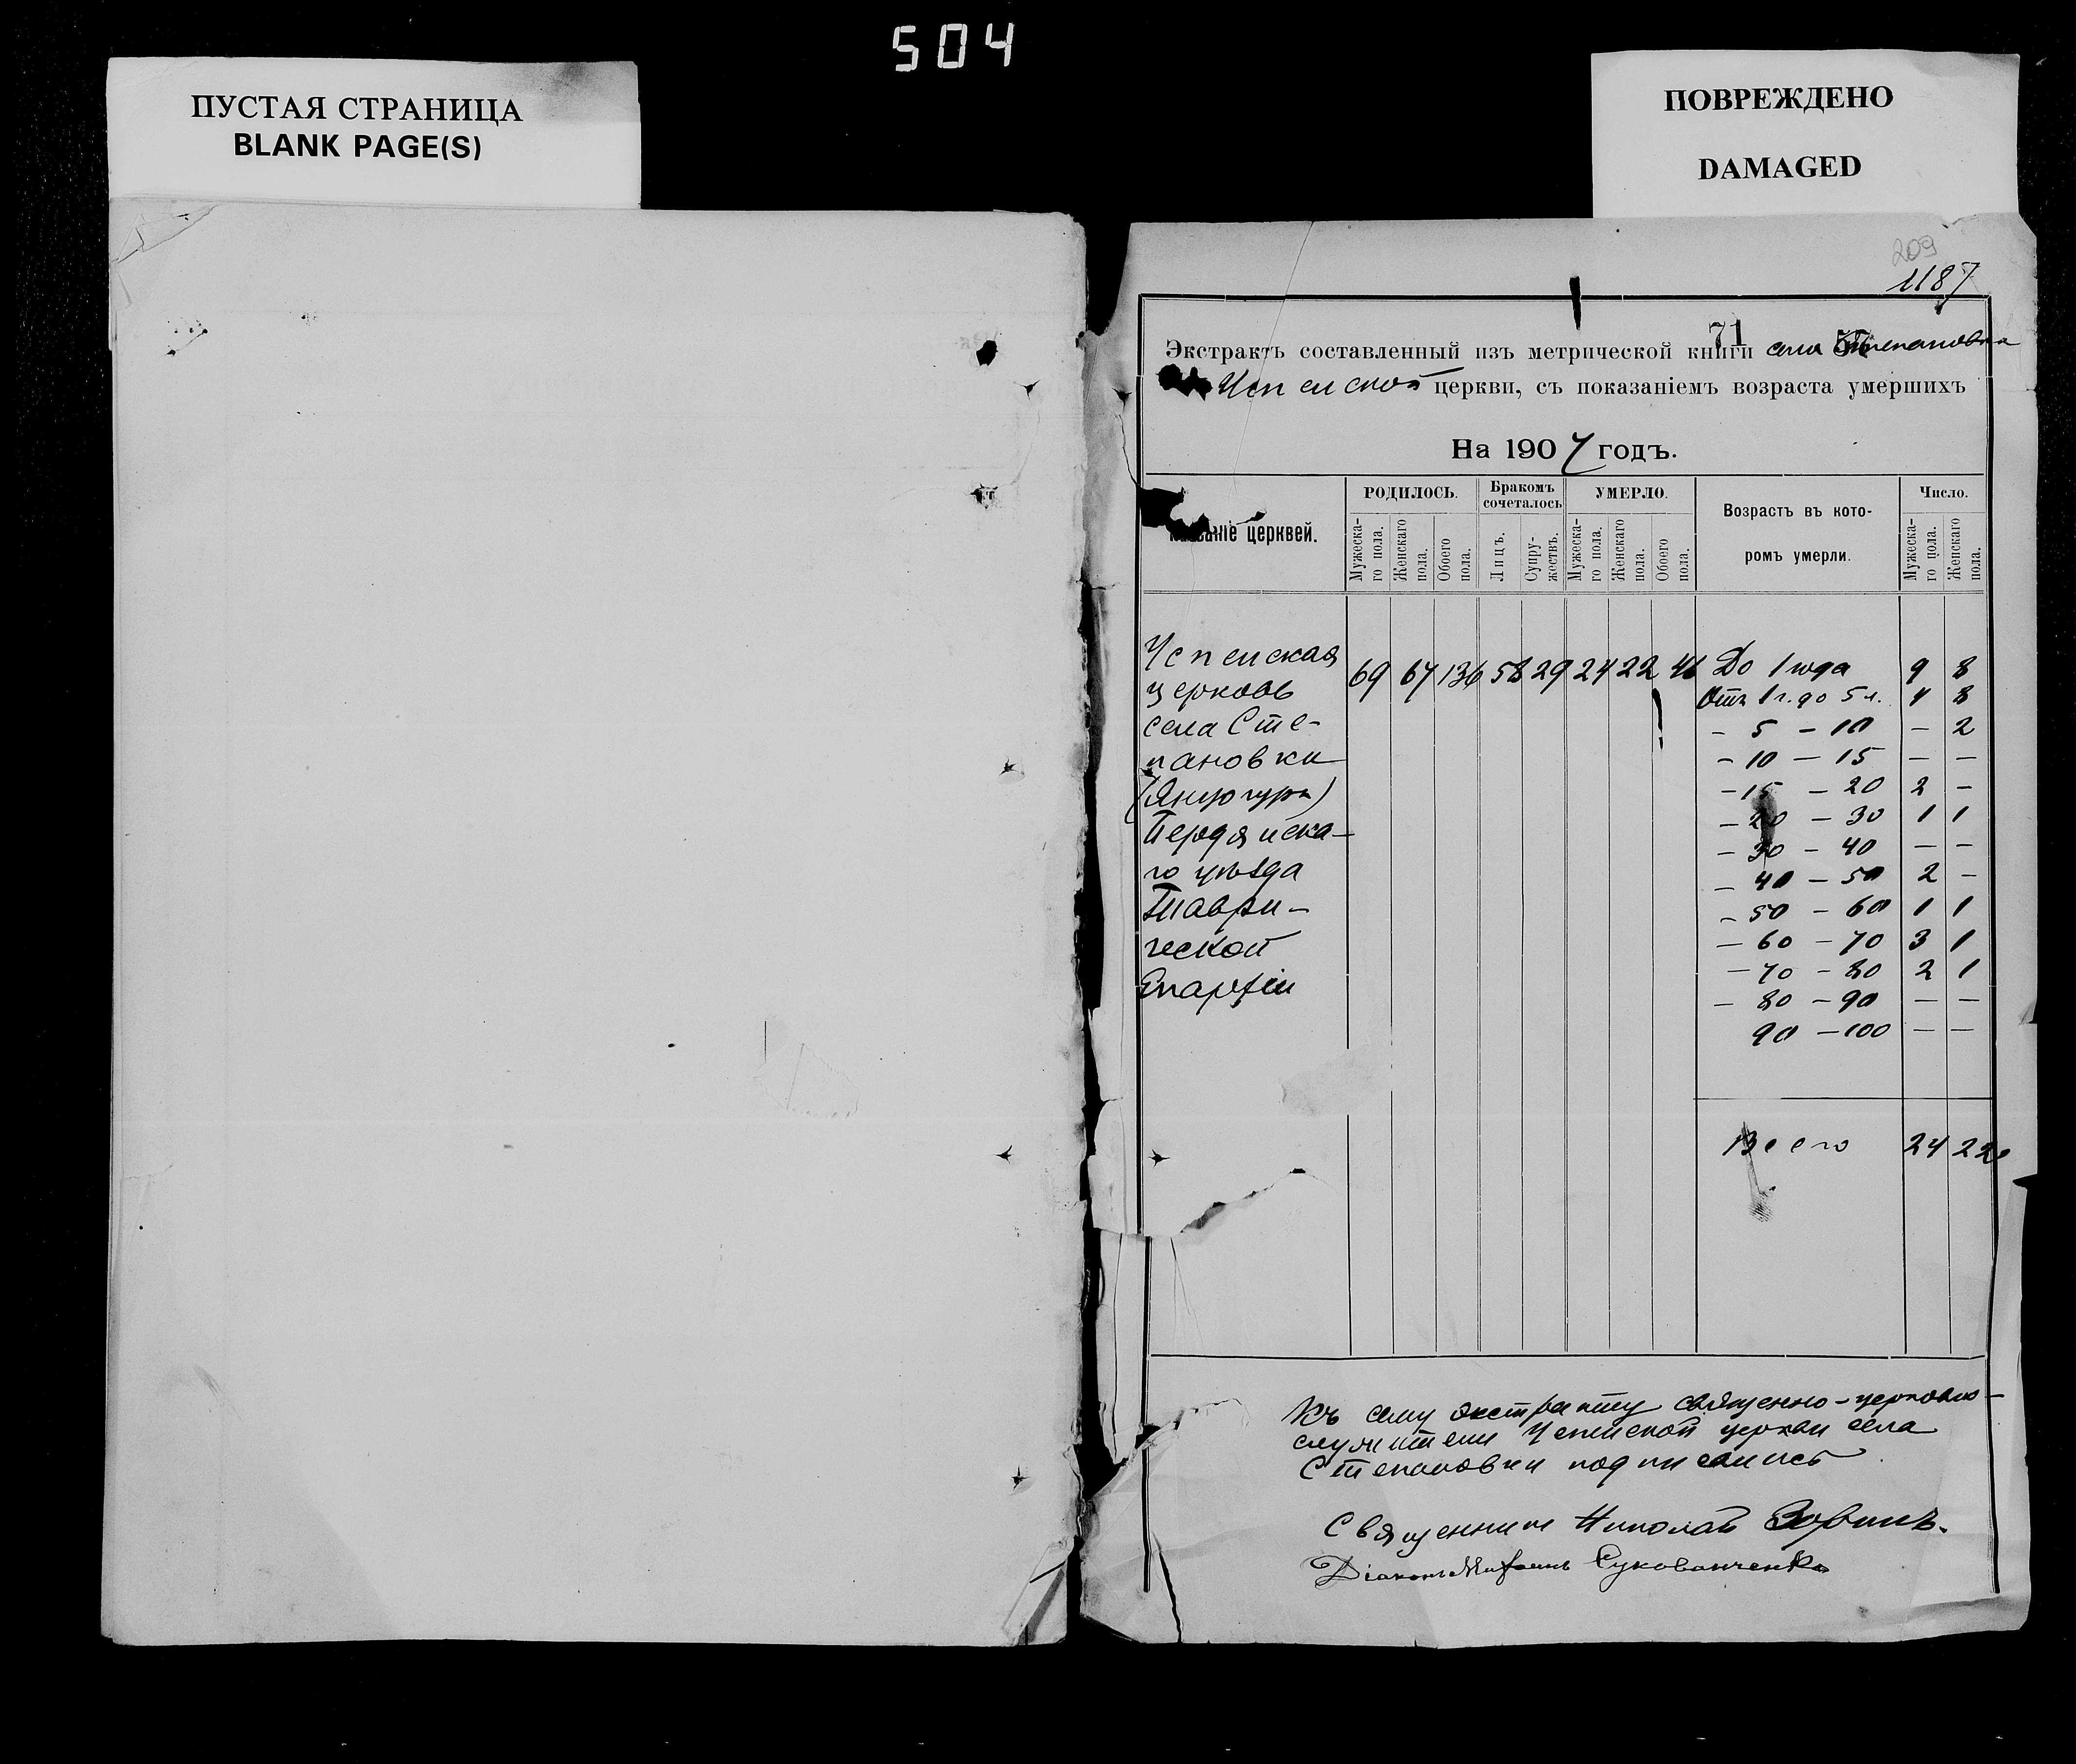 504
ПУСТАЯ СТРАНИЦА
BLANK PAGE(S)
ПОВРЕЖДЕНО
DAMAGED
209
1187
71
Экстрактъ составленный изъ метрической книги села Степановка
Успенской церкви, съ показаніемъ возраста умершихъ
На 1907 годъ.
Названіе церквей.
РОДИЛОСЬ.
Мужеска-го пола.
Женскаго пола.
Обоего пола.
Бракомъ сочеталось
Лицъ.
Супру-жествъ.
УМЕРЛО.
Мужеска-го пола.
Женскаго пола.
Обоего пола.
Возрастъ въ кото-
ромъ умерли.
Число.
Мужеска-го пола.
Женскаго пола.
Успенская
церковь
села Сте-
пановки
Бердянска-
го уѣзда
Таври-
ческой
Епархіи
69 67 136 58 29 24 22 46
До 1 года 9 8
Отъ 1 г. до 5 л. 4 8
- 5 - 10 - 2
- 10 - 15 - -
- 15 - 20 2 -
- 20 - 30 1 1
- 30 - 40 - -
- 40 - 50 2 -
- 50 - 60 1 1
- 60 - 70 3 1
- 70 - 80 2 1
- 80 - 90 - -
90 - 100 - -
Всего 24 22
Къ сему экстракту священно-церковно-
служители Успенской церкви села
Степановки подписались
Священникъ Николай
Діаконъ